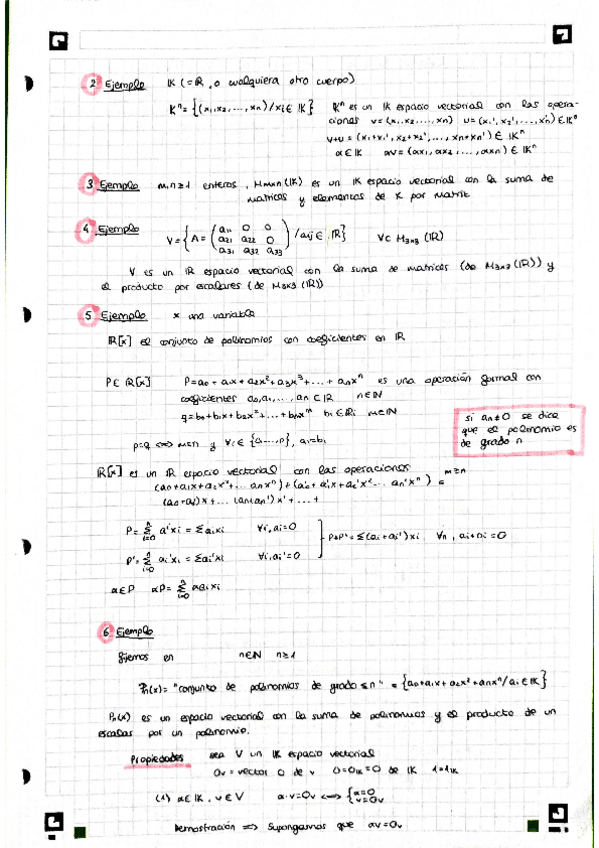 2 Ejemplo K (=R, o cualquiera otro cuerpo)
K^n = {(x1,x2,...,xn)/xi∈ K} K^n es un K espacio vectorial con las opera-
ciones v=(x1,x2,...,xn) u=(x1',x2',...,xn')∈K^n
v+u = (x1+x1', x2+x2',..., xn+xn') ∈ K^n
α∈K αv=(αx1, αx2,..., αxn) ∈ K^n
3 Ejemplo m,n≥1 enteros, Mmxn(K) es un K espacio vectorial con la suma de
matrices y elementos de K por matriz
4 Ejemplo V = {A = (a11 0 0
a21 a22 0
a31 a32 a33) / aij ∈ R} V⊂ M3x3 (R)
V es un R espacio vectorial con la suma de matrices (de M3x3(R)) y
el producto por escalares (de M3x3 (R))
5 Ejemplo x una variable
R[x] el conjunto de polinomios con coeficientes en R
P∈ R[x] P=a0+a1x+a2x²+a3x³+...+anx^n es una operación formal con
coeficientes a0,a1,..., an ⊂ R n∈N
q=b0+b1x+b2x²+...+bmx^m bi∈R m∈N
si an≠0 se dice
que el polinomio es
de grado n
p=q ⟺ m=n y ∀i∈{0,...,n}, ai=bi
R[x] es un R espacio vectorial con las operaciones
(a0+a1x+a2x²+...anx^n)+(a0'+a1'x+a2'x²...an'x^n) = m≥n
P = Σ i=0 n aixi = Σaixi ∀i,ai=0
P+P'=Σ(ai+ai')xi ∀n, ai+ni=0
P' = Σ i=0 n ai'xi = Σai'xi ∀i,ai'=0
α∈P αP= Σ i=0 n αaixi
6 Ejemplo
fijemos en n∈N n≥1
Pn(x)= "conjunto de polinomios de grado ≤n" = {a0+a1x+a2x²+anx^n/ai∈K}
Pn(x) es un espacio vectorial con la suma de polinomios y el producto de un
escalas por un polinomio.
Propiedades sea V un K espacio vectorial
0v=vector 0 de v 0=0K=0 de K 1=1K
(1) α∈K, v∈V α·v=0v ⟺ {α=0
v=0v
Demostración ⇒ Supongamos que αv=0v